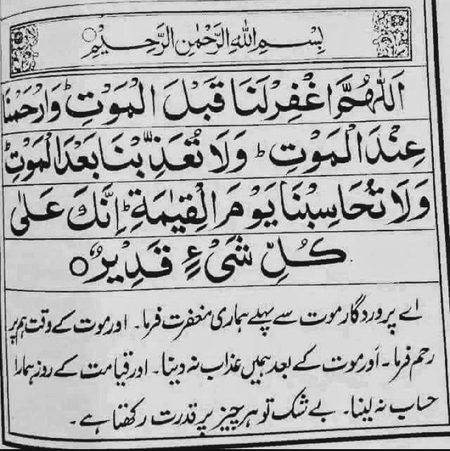 بِسْمِ اللهِ الرَّحْمٰنِ الرَّحِيْمِ ○
اَللّٰهُمَّ اغْفِرْ لَنَا قَبْلَ الْمَوْتِ ؕ وَارْحَمْنَا
عِنْدَ الْمَوْتِ ؕ وَلَا تُعَذِّبْنَا بَعْدَ الْمَوْتِ ؕ
وَلَا تُحَاسِبْنَا يَوْمَ الْقِيٰمَةِ ؕ اِنَّكَ عَلٰى
كُلِّ شَيْءٍ قَدِيْرٌ ○
اے پروردگار موت سے پہلے ہماری مغفرت فرما۔ اور موت کے وقت ہم پر
رحم فرما۔ اور موت کے بعد ہمیں عذاب نہ دینا۔ اور قیامت کے روز ہمارا
حساب نہ لینا۔ بے شک تو ہر چیز پر قدرت رکھتا ہے۔